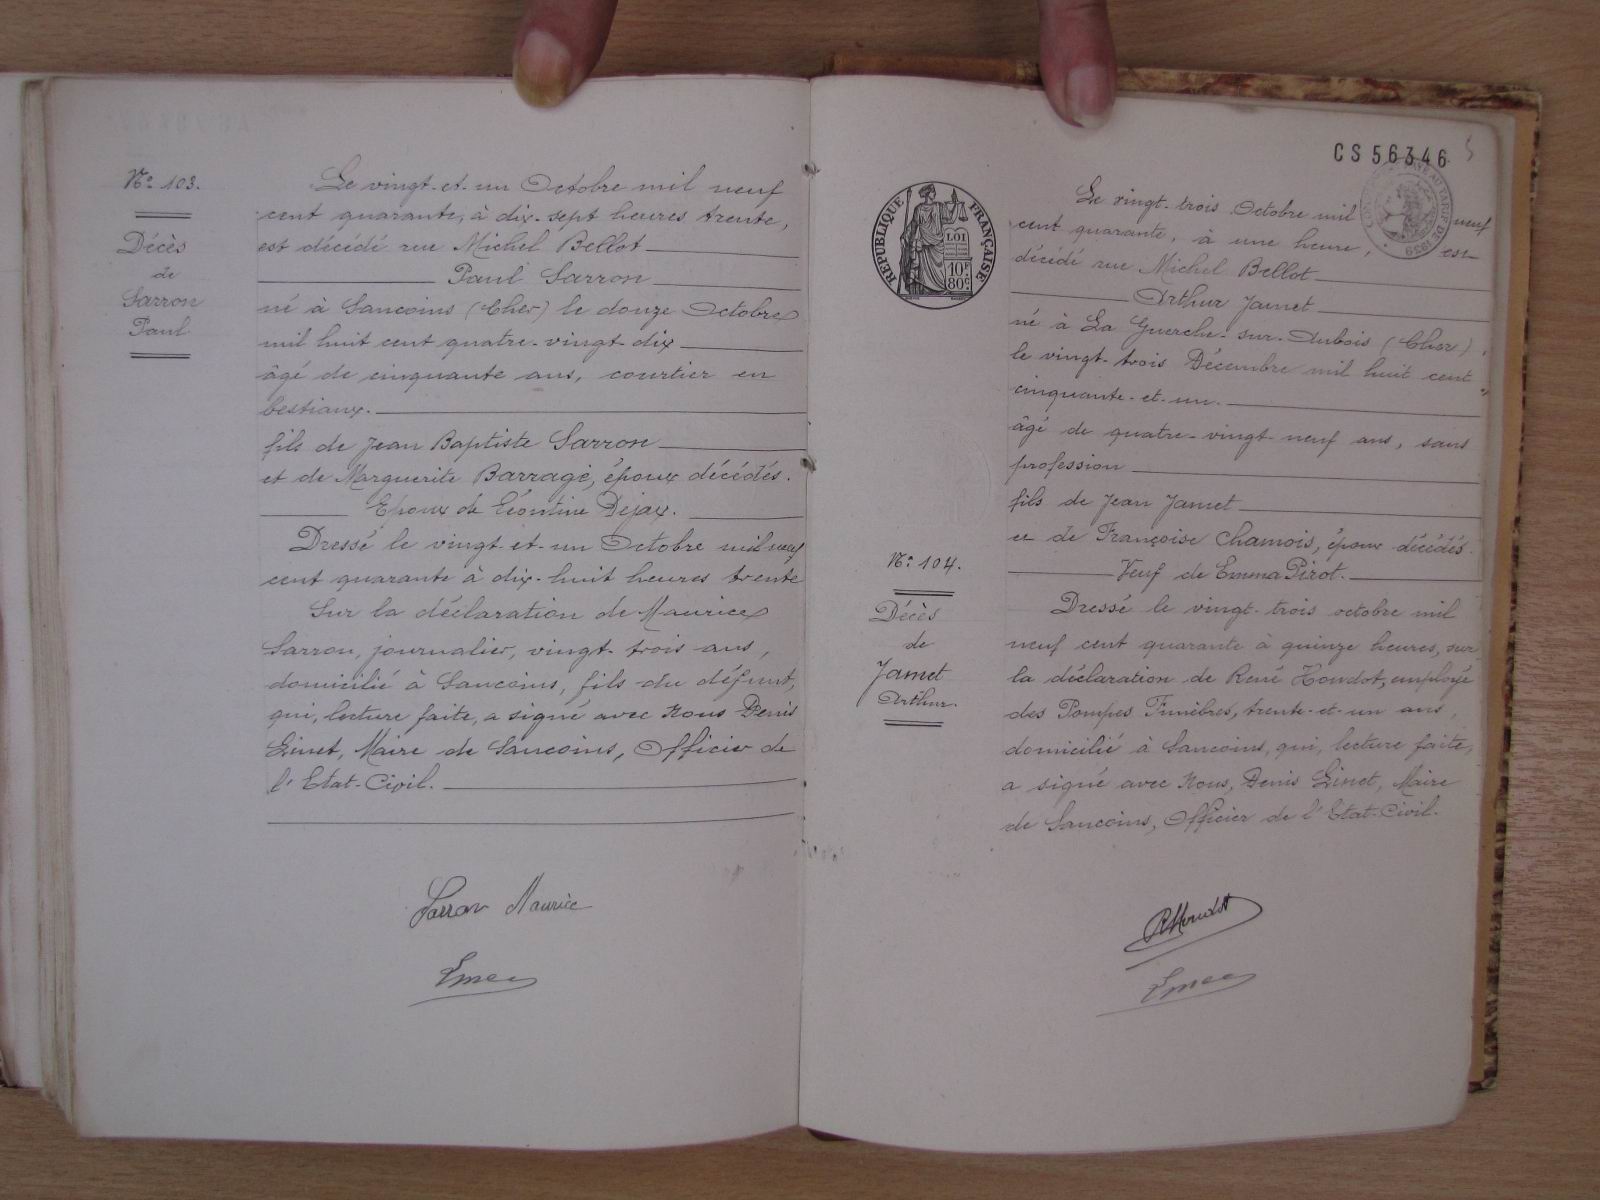 Nº 103.
Décès
de
Sarron
Paul
Le vingt-et-un Octobre mil neuf
cent quarante, à dix-sept heures trente,
est décédé rue Michel Bellot
Paul Sarron
né à Sancoins (Cher) le douze Octobre
mil huit cent quatre-vingt dix
âgé de cinquante ans, courtier en
bestiaux.
fils de Jean Baptiste Sarron
et de Marguerite Barragé, époux décédés.
Epoux de Léontine Dejax.
Dressé le vingt-et-un Octobre mil neuf
cent quarante à dix-huit heures trente
Sur la déclaration de Maurice
Sarron, journalier, vingt-trois ans,
domicilié à Sancoins, fils du défunt,
qui, lecture faite, a signé avec Nous Denis
Linet, Maire de Sancoins, Officier de
l'Etat-Civil.
Sarron Maurice
CS 56346
RÉPUBLIQUE FRANÇAISE
LOI
10F
80C
Nº 104.
Décès
de
Jamet
Arthur.
Le vingt-trois Octobre mil neuf
cent quarante, à une heure, est
décédé rue Michel Bellot
Arthur Jamet
né à La Guerche-sur-Aubois (Cher)
le vingt-trois Décembre mil huit cent
cinquante-et-un.
âgé de quatre-vingt-neuf ans, sans
profession
fils de Jean Jamet
et de Françoise Chamois, époux décédés.
Veuf de Emma Pirot.
Dressé le vingt-trois octobre mil
neuf cent quarante à quinze heures, sur
la déclaration de René Houdot, employé
des Pompes Funèbres, trente-et-un ans,
domicilié à Sancoins, qui, lecture faite,
a signé avec Nous, Denis Linet, Maire
de Sancoins, Officier de l'Etat-Civil.
RHoudot